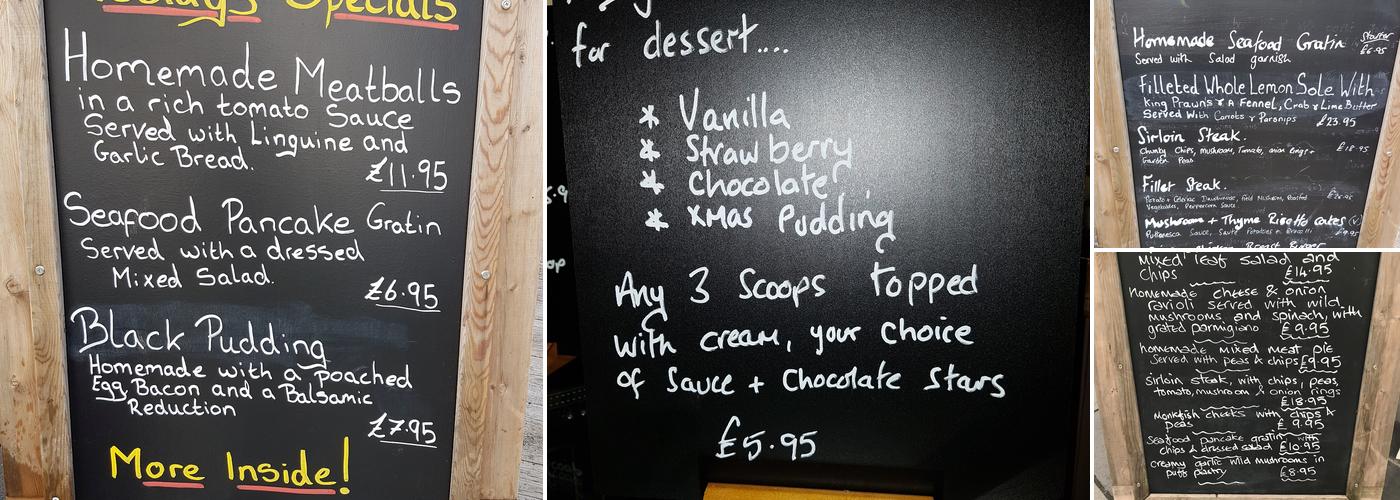 Today's Specials
Homemade Meatballs
in a rich tomato Sauce
Served with Linguine and
Garlic Bread.
£11.95
Seafood Pancake Gratin
Served with a dressed
Mixed Salad.
£6.95
Black Pudding
Homemade with a poached
Egg, Bacon and a Balsamic
Reduction
£7.95
More Inside!
for dessert....
* Vanilla
* Strawberry
* Chocolate
* XMas Pudding
Any 3 Scoops topped
with cream, your choice
of Sauce + Chocolate Stars
£5.95
Homemade Seafood Gratin Starter
Served with Salad garnish £6.95
Filleted Whole Lemon Sole With
King Prawns & A Fennel, Crab & Lime Butter
Served With Carrots & Parsnips £23.95
Sirloin Steak.
Chunky Chips, mushroom, Tomato, onion Rings + £18.95
Garden Peas
Fillet Steak.
Vegetables, Peppercorn Sauce
Mushroom + Thyme Risotto cakes (v)
Puttanesca Sauce, Sauté Potatoes + Broccoli £9.95
Chicken Breast Burger
Mixed leaf salad and
Chips £14.95
homemade cheese & onion
ravioli served with wild
mushrooms and spinach, with
grated parmigiano £9.95
homemade mixed meat pie
Served with peas & chips £9.95
Sirloin steak, with chips, peas,
tomato, mushroom & onion rings
£18.95
Monkfish cheeks with chips &
peas £9.95
Seafood pancake gratin with
chips & dressed salad £10.95
creamy garlic wild mushrooms in
puff pastry £8.95